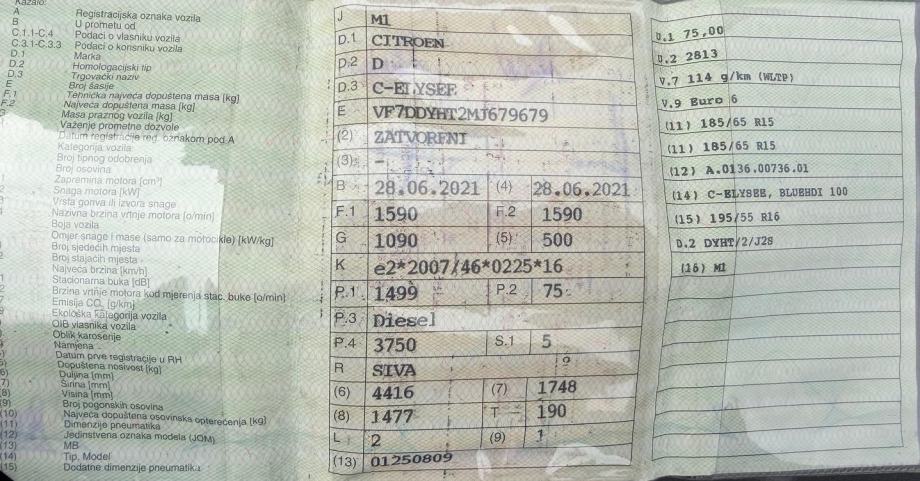 Kazalo:
A Registracijska oznaka vozila
B U prometu od
C.1.1-C.4 Podaci o vlasniku vozila
C.3.1-C.3.3 Podaci o korisniku vozila
D.1 Marka
D.2 Homologacijski tip
D.3 Trgovački naziv
E Broj šasije
F.1 Tehnička najveća dopuštena masa [kg]
F.2 Najveća dopuštena masa [kg]
G Masa praznog vozila [kg]
Važenje prometne dozvole
Datum registracije reg. oznakom pod A
Kategorija vozila
Broj tipnog odobrenja
Broj osovina
Zapremina motora [cm³]
Snaga motora [kW]
Vrsta goriva ili izvora snage
Nazivna brzina vrtnje motora [o/min]
Boja vozila
Omjer snage i mase (samo za motocikle) [kW/kg]
Broj sjedećih mjesta
Broj stajaćih mjesta
Najveća brzina [km/h]
Stacionarna buka [dB]
Brzina vrtnje motora kod mjerenja stac. buke [o/min]
Emisija CO₂ [g/km]
Ekološka kategorija vozila
OIB vlasnika vozila
Oblik karoserije
Namjena
Datum prve registracije u RH
Dopuštena nosivost [kg]
Duljina [mm]
Širina [mm]
Visina [mm]
(9) Broj pogonskih osovina
(10) Najveća dopuštena osovinska opterećenja [kg]
(11) Dimenzije pneumatika
(12) Jedinstvena oznaka modela (JOM)
(13) MB
(14) Tip, Model
(15) Dodatne dimenzije pneumatika
J M1
D.1 CITROEN
D.2 D
D.3 C-ELYSEE
E VF7DDYHT2MJ679679
(2) ZATVORENI
(3) -
B 28.06.2021 (4) 28.06.2021
F.1 1590 F.2 1590
G 1090 (5) 500
K e2*2007/46*0225*16
P.1 1499 P.2 75
P.3 Diesel
P.4 3750 S.1 5
R SIVA
(6) 4416 (7) 1748
(8) 1477 T 190
L 2 (9) 1
(13) 01250809
U.1 75,00
U.2 2813
V.7 114 g/km (WLTP)
V.9 Euro 6
(11) 185/65 R15
(11) 185/65 R15
(12) A.0136.00736.01
(14) C-ELYSEE, BLUEHDI 100
(15) 195/55 R16
D.2 DYHT/2/J2S
(16) M1